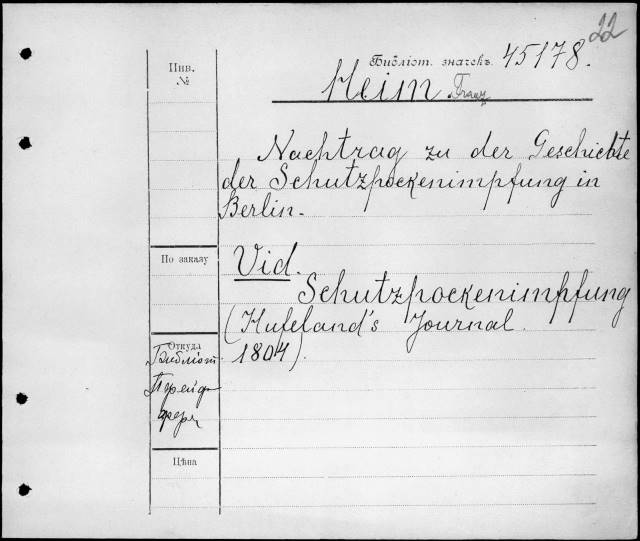 22
Библіот. значекъ 45178.
Инв.
№
Heim. Franz
Nachtrag zu der Geschichte
der Schutzpockenimpfung in
Berlin.
По заказу
Vid.
Schutzpockenimpfung
(Hufeland's Journal
1804).
Откуда
Библіот.
Цѣна